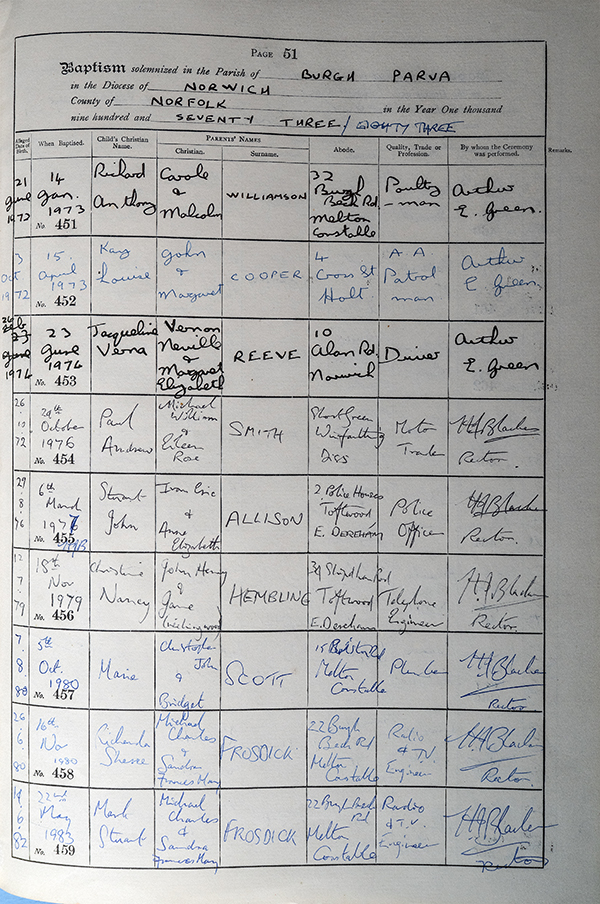 PAGE 51
Baptism solemnized in the Parish of BURGH PARVA
in the Diocese of NORWICH
County of NORFOLK in the Year One thousand
nine hundred and SEVENTY THREE / EIGHTY THREE
Alleged Date of Birth. When Baptised. Child's Christian Name. PARENTS' NAMES Christian. Surname. Abode. Quality, Trade or Profession. By whom the Ceremony was performed. Remarks.
21 June 1972
14 Jan. 1973
No. 451
Richard Anthony
Carole & Malcolm
WILLIAMSON
32 Burgh Beck Rd. Melton Constable
Poultry-man
Arthur E. Green.
3 Oct. 1972
15. April 1973
No. 452
Kay Louise
John & Margaret
COOPER
4 Cross St Holt
A A Patrol man
Arthur E Green.
23 June 1974
No. 453
Jacqueline Verna
Vernon Neville & Margaret Elizabeth
REEVE
10 Alan Rd. Norwich
Driver
Arthur E. Green
26 10 72
October 1976
No. 454
Paul Andrew
Michael William & Eileen Rose
SMITH
Short Green Winfarthing Diss
Motor Trade
Rector.
29 8 76
6th March 1977
No. 455
Stuart John
Ivan Eric & Anne Elizabeth
ALLISON
2 Police Houses Toftwood E. DEREHAM
Police Officer
Rector.
12 7 79
18th Nov 1979
No. 456
Christine Nancy
John Henry & Jane
HEMBLING
Toftwood E. Dereham
Telephone Engineer
Rector.
7. 8. 80
5th Oct. 1980
No. 457
Marie
Christopher John & Bridget
SCOTT
Melton Constable
Plumber
Rector.
26 6 80
16th Nov 1980
No. 458
Michael Charles & Sandra Frances Mary
FROSDICK
22 Burgh Beck Rd Melton Constable
Radio & T.V. Engineer
Rector.
14 6 82
22nd May 1983
No. 459
Mark Stuart
Michael Charles & Sandra Frances Mary
FROSDICK
22 Burgh Beck Rd Melton Constable
Radio & T.V. Engineer
Rector